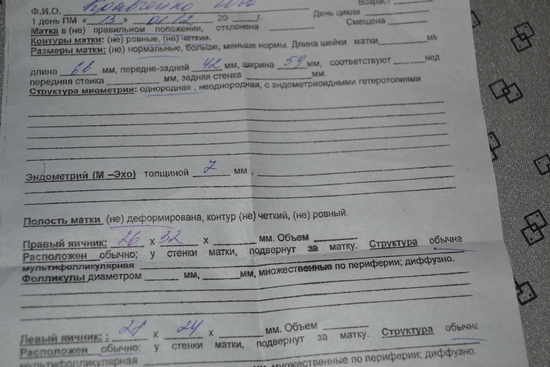 Ф.И.О. Возраст
1 день ПМ « 13 » 01/12 20 г. День цикла
Матка в (не) правильном положении, отклонена Смещена
Контуры матки: (не) ровные, (не) четкие.
Размеры матки: (не) нормальные, больше, меньше нормы. Длина шейки матки мь
длина 66 мм, передне-задний 42 мм, ширина 59 мм, соответствуют нед
передняя стенка мм, задняя стенка мм.
Структура миометрия: однородная , неоднородная, с эндометриоидными гетеротопиями
Эндометрий (М –Эхо) толщиной 7 мм ,
Полость матки (не) деформирована, контур (не) четкий, (не) ровный.
Правый яичник: 26 х 32 х мм. Объем
Расположен обычно; у стенки матки, подвернут за матку. Структура обычна
мультифолликулярная
Фолликулы диаметром мм, мм, множественные по периферии; диффузно.
Левый яичник: : 28 х 24 х мм. Объем
Расположен обычно; у стенки матки, подвернут за матку. Структура обычна
мультифолликулярная
мм, множественные по периферии; диффузно.